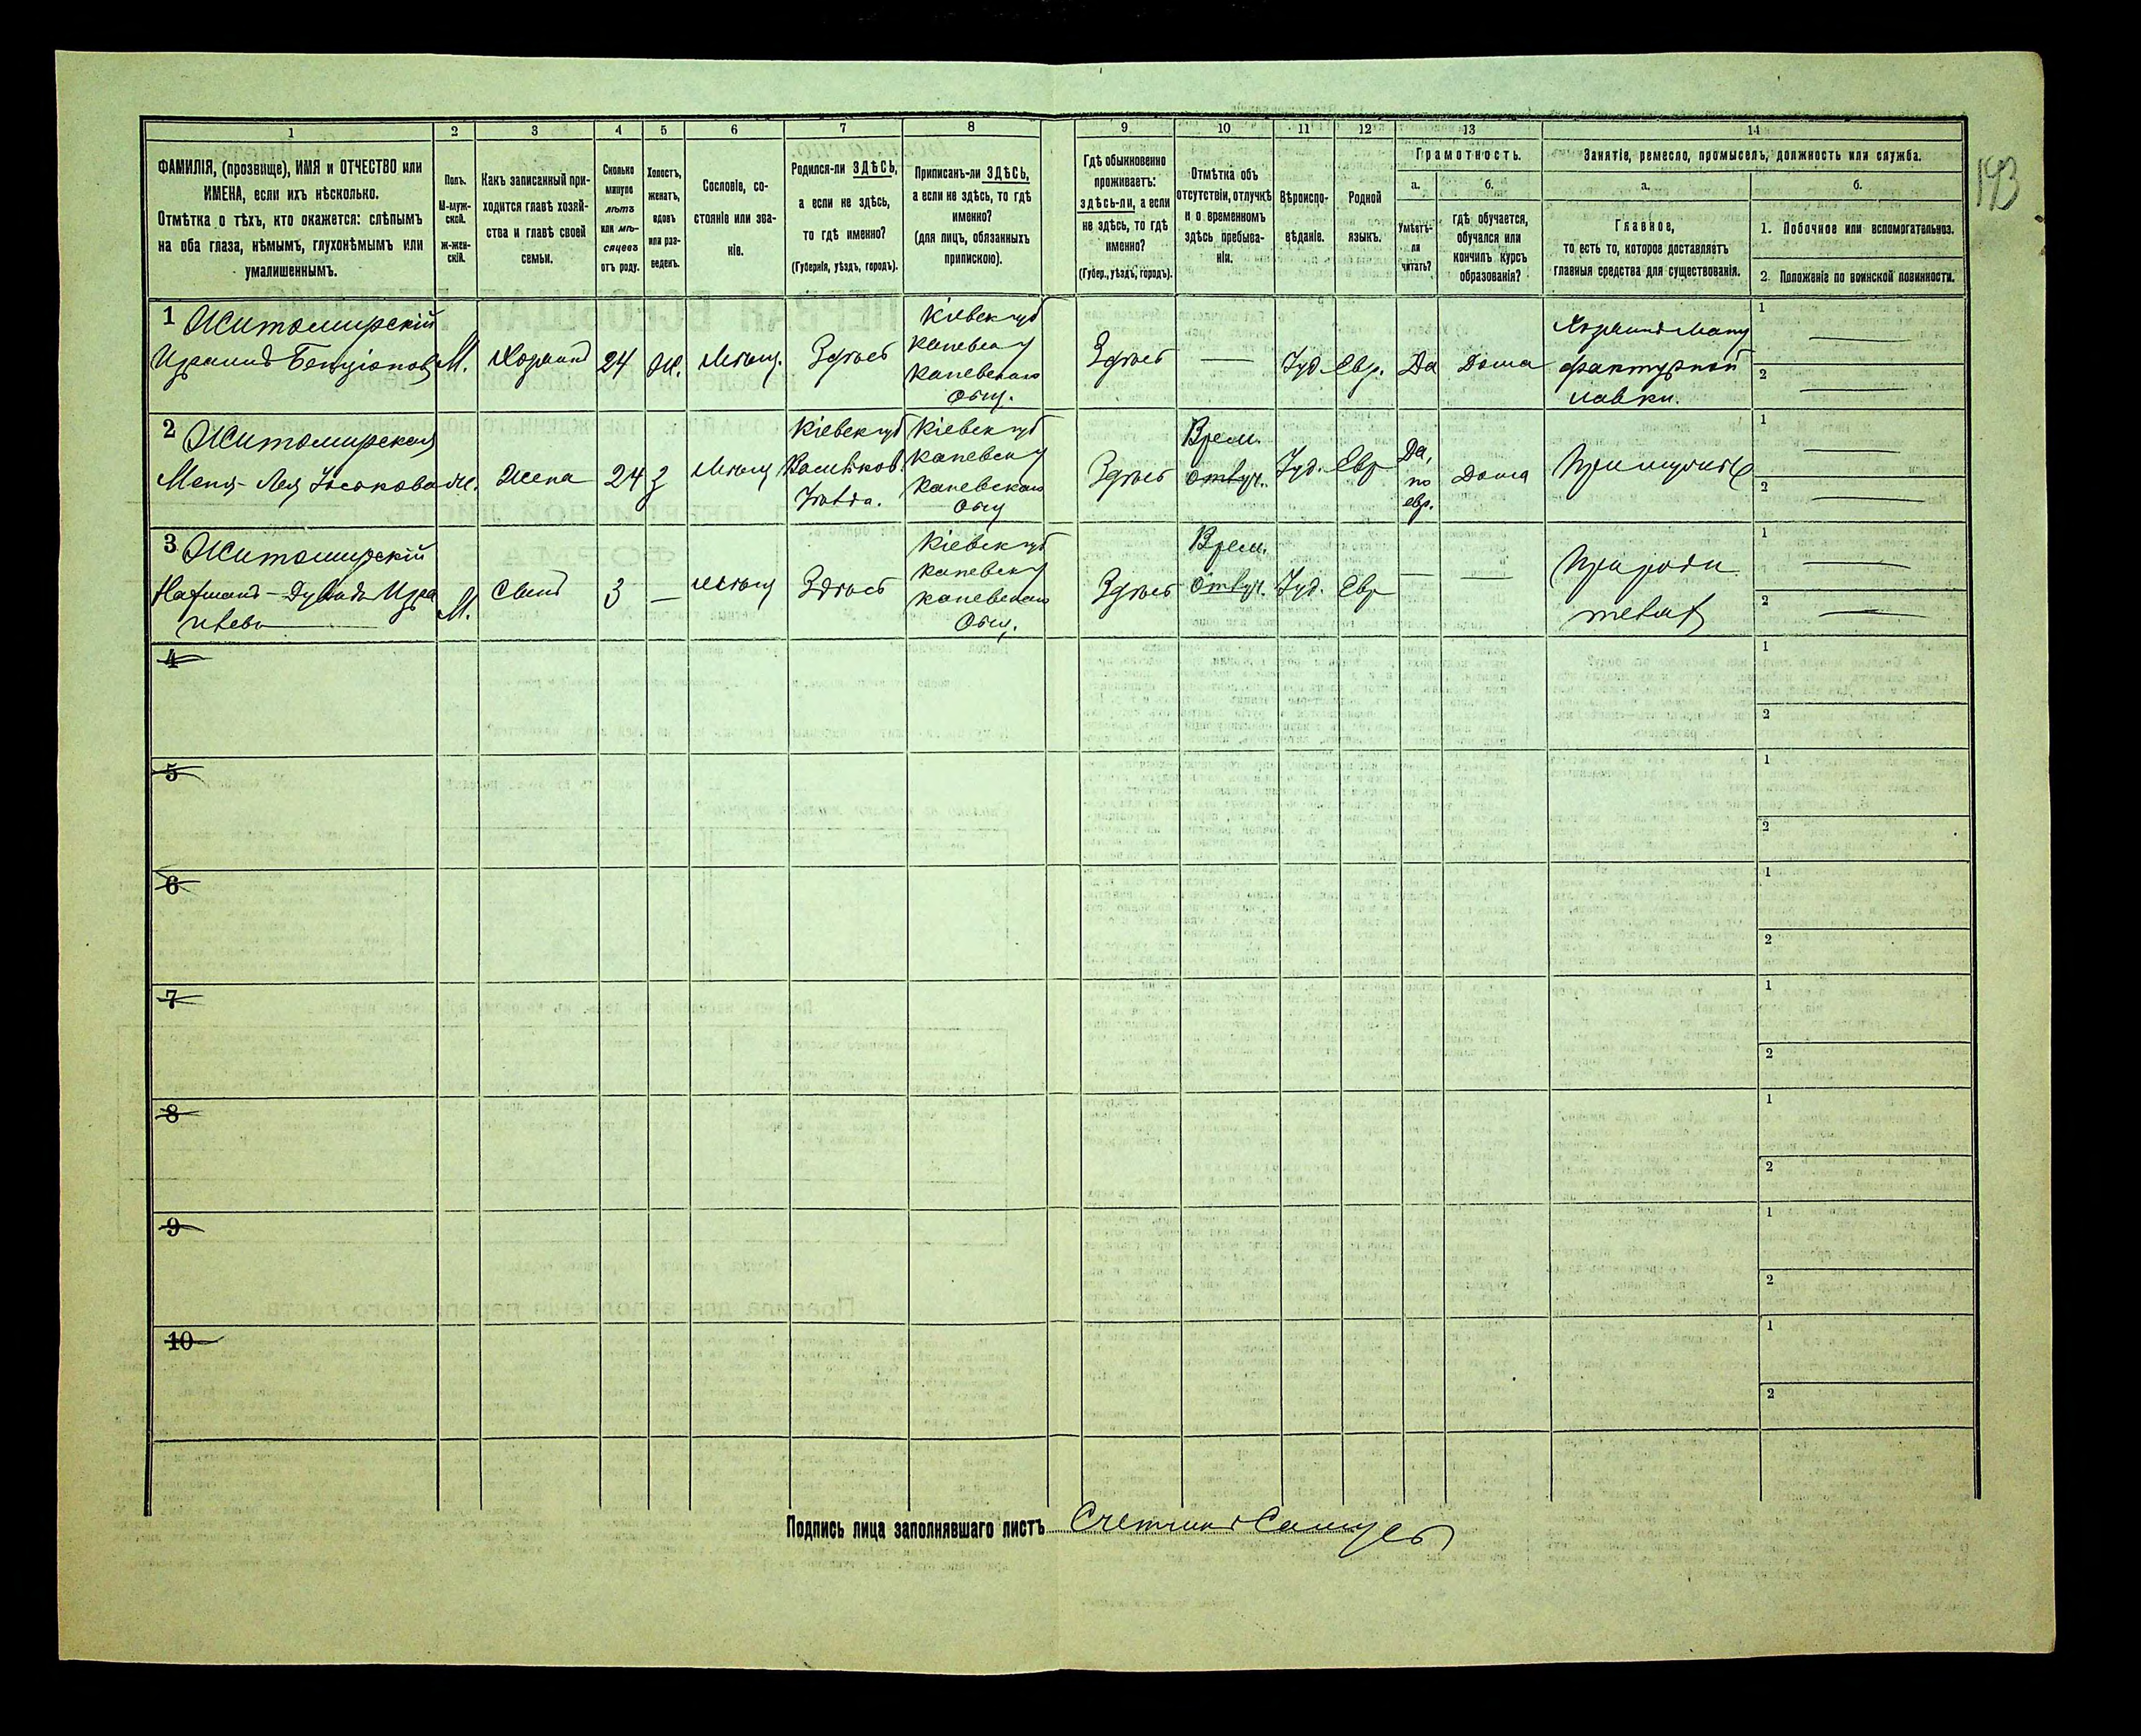 193
1 2 3 4 5 6 7 8 9 10 11 12 13 14
ФАМИЛІЯ, (прозвище), ИМЯ и ОТЧЕСТВО или
ИМЕНА, если ихъ нѣсколько.
Отмѣтка о тѣхъ, кто окажется: слѣпымъ
на оба глаза, нѣмымъ, глухонѣмымъ или
умалишеннымъ.
Полъ.
М-муж-
ской.
ж-жен-
скій.
Какъ записанный при-
ходится главѣ хозяй-
ства и главѣ своей
семьи.
Сколько
минуло
лѣтъ
или мѣ-
сяцевъ
отъ роду.
Холостъ,
женатъ,
вдовъ
или раз-
веденъ.
Сословіе, со-
стояніе или зва-
ніе.
Родился-ли ЗДѢСЬ,
а если не здѣсь,
то гдѣ именно?
(Губернія, уѣздъ, городъ).
Приписанъ-ли ЗДѢСЬ,
а если не здѣсь, то гдѣ
именно?
(для лицъ, обязанныхъ
припискою).
Гдѣ обыкновенно
проживаетъ:
здѣсь-ли, а если
не здѣсь, то гдѣ
именно?
(Губер., уѣздъ, городъ).
Отмѣтка объ
отсутствіи, отлучкѣ
и о временномъ
здѣсь пребыва-
ніи.
Вѣроиспо-
вѣданіе.
Родной
языкъ.
Грамотность.
а.
Умѣетъ-
ли
читать?
б.
гдѣ обучается,
обучался или
кончилъ курсъ
образованія?
Занятіе, ремесло, промыселъ, должность или служба.
а.
Главное,
то есть то, которое доставляетъ
главныя средства для существованія.
б.
1. Побочное или вспомогательное.
2. Положеніе по воинской повинности.
1 Житомирскій
Израиль Бенціоновъ
М.
Хозяинъ
24
Ж.
Мѣщ.
Здѣсь
Кіевск губ
Каневск у
Каневскаго
Общ.
Здѣсь
—
Іуд.
Евр.
Да
Дома
Хозяинъ Ману
фактурной
лавки.
1 —
2 —
2 Житомирская
Меня-Лея Іоськовна
Ж.
Жена
24
З
Мѣщ
Кіевск губ
Васильков.
Кіевск губ
Каневск у
Каневскаго
Общ
Здѣсь
Врем.
отлуч.
Іуд.
Евр
Да,
по
евр.
Дома
При мужѣ
1 —
2 —
3 Житомирскій
Нафманъ-Дувидъ Изра
илевъ
М.
Сынъ
3
—
Мѣщ
Здѣсь
Кіевск губ
Каневск у
Каневскаго
Общ.
Здѣсь
Врем.
отлуч.
Іуд.
Евр
—
—
При роди
теляхъ
1 —
2 —
4
1
2
5
1
2
6
1
2
7
1
2
8
1
2
9
1
2
10
1
2
Подпись лица заполнявшаго листъ Счетчикъ